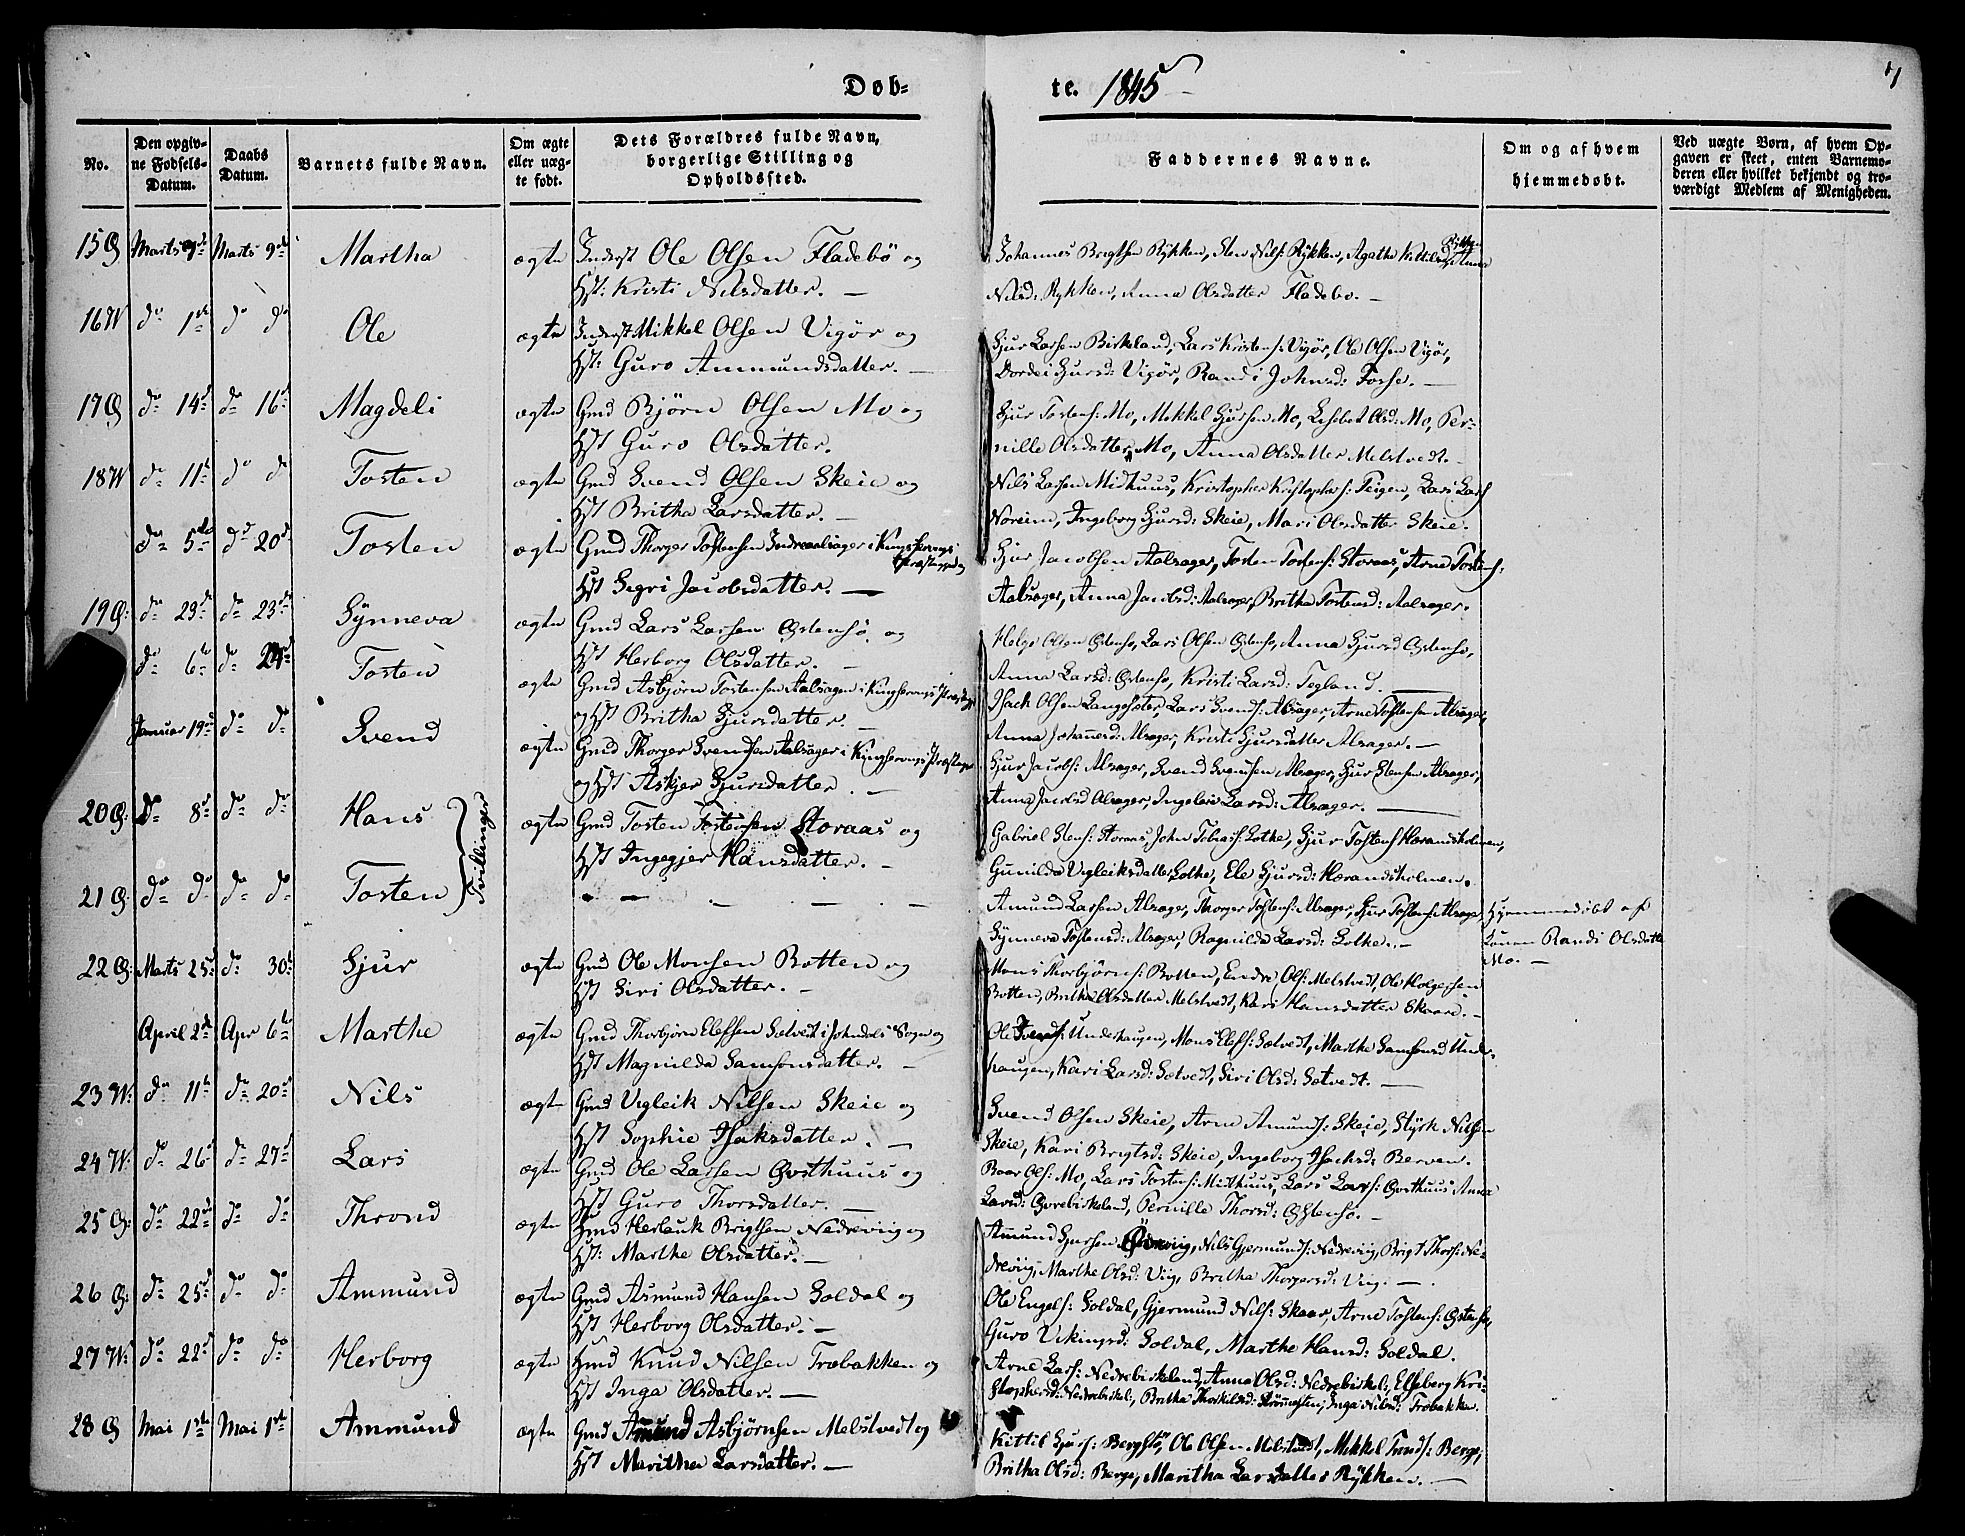 Døb-
te. 1845
No.
Den opgiv-
ne Fødsels-
Datum.
Daabs
Datum.
Barnets fulde Navn.
Om ægte
eller uæg-
te født.
Dets Forældres fulde Navn,
borgerlige Stilling og
Opholdssted.
Faddernes Navne.
Om og af hvem
hjemmedøbt.
Ved uægte Børn, af hvem Op-
gaven er skeet, enten Barnemo-
deren eller hvilket bekjendt og tro-
værdigt Medlem af Menigheden.
15 Marts Marts 9de Martha ægte Inderst Ole Olsen Fladebø og
Hst: Kristi Nilsdatter. —
Johannes Brigtsen Rykken, Sten Nils: Rykken, Agatha Anna Rykken
Nilsd: Rykken, Anna Olsdatter Fladebo. —
16 W do 1ste do do Ole ægte Inderst Mikkel Olsen Vigør og
Hst: Guro Ammundsdatter. —
Sjur Larsen Birkland, Lars Vigør, Ole Olsen Vigør,
Dordei Sjursd: Vigør, Randi Johnsd: Fosse. —
17 do 14de do 16de Magdeli ægte Gmd Bjørn Olsen Mo og
Hst Guro Olsdatter.
Sjur Tostens: Mo, Mikkel Sjursen Mo, Lisbet Olsd: Mo, Per-
nille Olsdatter Mo, Anna Olsdatter Melstvedt. —
18 W do 11te do do Tosten ægte Gmd Svend Olsen Skeie og
Hst Britha Larsdatter. —
Nils Larsen Midhuus, Kristopher Kristophers: Teigen, Lars Lars:
Noreim, Ingeborg Sjursd: Skeie, Mari Olsdatter Skeie.
do 5te do 20de Tosten ægte Gmd Thorger Tostensen i Kingservigs
Præstegjeld og
Hst Segri Jacobsdatter. —
Sjur Jacobsen Aalsager, Tosten Tostens: Storaas, Arne Tostens:
Aalsager, Anna Jacobsd: Aalsager, Britha Tostensd: Aalsager.
19 do 23de do 23de Synneva ægte Gmd Lars Larsen Østensø og
Hst Herborg Olsdatter. —
Helge Olsen Østensø, Lars Olsen Østensø, Anna Sjursd Østensø,
Anna Larsd: Østensø, Kristi Larsd: Tegland. —
do 6te do Tosten ægte Gmd Asbjørn Tostensen Aalsager i Kingservigs Præstegj:
og Hst Britha Sjursdatter. —
Isach Olsen Langesæter, Lars Svends: Alsager, Arne Tostensen Alsager,
Anna Johannesd: Alsager, Kristi Sjursdatter Alsager. —
Januar 19de do do Svend ægte Gmd Thorger Svendsen Aalsager i Kingservigs Præstegj
og Hst Askjer Sjursdatter. —
Sjur Jacobs: Alsager, Svend Svendsen Alsager, Sjur Stensen Alsager,
Anna Jacobsd Alsager, Ingeleiv Larsd: Alsager. —
20 do 8de do do Hans ægte Gmd Tosten Tostensen Storaas og
Hst Ingegjer Hansdatter. —
Gabriel Stens: Storaas, John Tobias: Lothe, Sjur Tostens Hærandsholmen,
Gunilda Vigleiksdatter Lothe, Ele Sjursd: Hærandsholmen.
Tvillinger
21 do do do do Tosten — — — —
Amund Larsen Alsager, Thorger Tostens: Alsager, Sjur Tostens: Alsager,
Synneva Tostensd: Alsager, Ragnilda Larsd: Lothe. —
Hjemmedøbt af
Konen Randi Olsdatter
Mo. —
22 Marts 25de do 30te Sjur ægte Gmd Ole Monsen Botten og
Hst Siri Olsdatter. —
Mons Thorbjørns: Botten, Endre Ols: Melstvedt, Ole Holgersen
Botten, Britha Olsdatter Melstvedt, Kari Hansdatter Skaare. —
April 2de Apr 6te Marthe ægte Gmd Thorbjørn Elefsen Sætvedt i Jondals Sogn og
Hst Magnilda Samsonsdatter. —
Ole Underhaugen, Mons Elefs: Sætvedt, Marthe Samsonsd Under-
haugen, Kari Larsd: Sætvedt, Siri Olsd: Sætvedt. —
23 W: do 11te do 20de Nils ægte Gmd Vigleik Nilsen Skeie og
Hst Sophie Isaksdatter. —
Svend Olsen Skeie, Arne Amunds: Skeie, Styrk Nilsen
Skeie, Kari Brigtsd: Skeie, Ingeborg Isachsd: Berven.
24 W: do 26de do 27de Lars ægte Gmd Ole Larsen Østhuus og
Hst Guro Thorsdatter. —
Baar Ols: Mo, Lars Tostens: Midhuus, Lars Lars: Østhuus Anna
Larsd: Øvrebirkeland, Pernille Thorsd: Østensø. —
25 do 22de do do Thrond ægte Gmd Herlauk Brigtsen Nedrevig og
Hst: Marthe Olsdatter. —
Amund Sjursen Nils Gjermunds: Nedrevig, Brigt Thors: Ne-
drevig, Marthe Olsd: Viig, Britha Thorgersd: Viig. —
26 do 25de do do Ammund ægte Gmd Asmund Hansen Soldal og
Hst Herborg Olsdatter. —
Ole Engels: Soldal, Gjermund Nils: Skaar, Arne Tostens: Østensø,
Guro Vikingsd: Soldal, Marthe Hansd: Soldal.
27 W: do 22de do do Herborg ægte Hmd Knud Nilsen Træbakken og
Hst Inga Olsdatter. —
Arne Lars: Nedrebirkeland, Anna Olsd: Nedrebirkel:, Elseberg Kri-
stophersd: Nedrebirkel:, Britha Thorkilsd: Inga Nilsd: Træbakke.
28 Mai 1ste Mai 1ste Ammund ægte Gmd Amund Asbjørnsen Melstvedt og
Hst Maritha Larsdatter. —
Kittil Sjurs: Bergstø, Ole Olsen Melstvedt, Mikkel Tronds: Berge,
Britha Olsd: Berge, Maritha Larsdatter Rykken. —